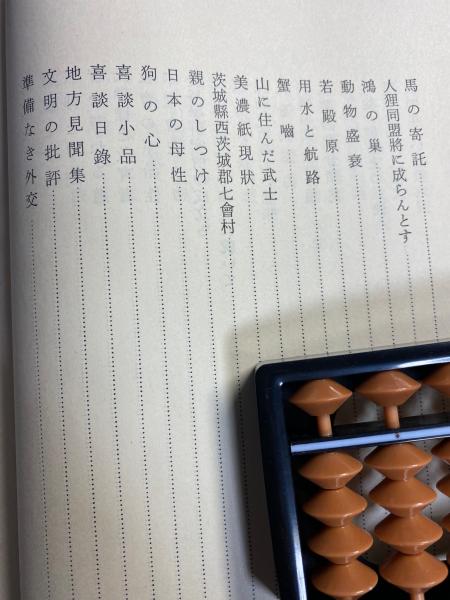 馬の寄託
人狸同盟將に成らんとす
鴻の巣
動物盛衰
若殿原
用水と航路
蟹噛
山に住んだ武士
美濃紙現狀
茨城縣西茨城郡七會村
親のしつけ
日本の母性
狗の心
喜談小品
喜談日錄
地方見聞集
文明の批評
準備なき外交